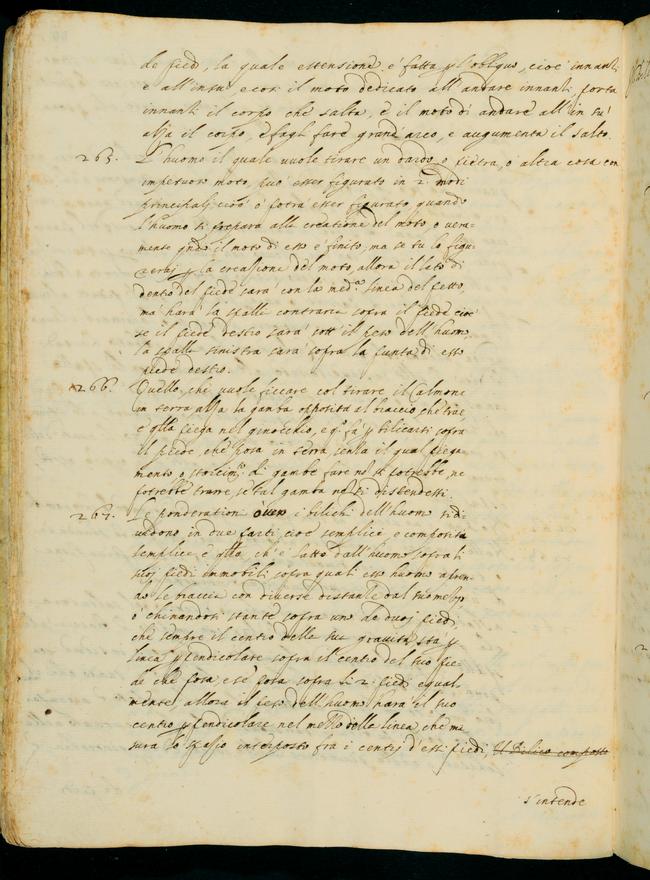 de piedi, la quale estensione è fatta p l'obliquo, cioè innanti
e all'insu, e così il moto dedicato all'andare innanti, porta
innanti il corpo che salta, e il moto di andare all'in su
alza il corpo, e fagli fare grand'arco, e augumenta il salto.
265. L'huomo il quale vuole tirare un dardo, o pietra, o altra cosa con
impetuoso moto, può esser figurato in 2 modi
principali, cioè o potrà esser figurato quando
l'huomo si prepara alla creatione del moto, o vera-
mente qndo il moto di esso è finito, ma se tu lo figu-
rerai p la creatione del moto, allora il lato di
dentro del piede sarà con la med.ma linea del petto,
ma harà la spalla contraria sopra il piede cioè
se il piede destro sarà sott' il peso dell'huomo,
la spalla sinistra sarà sopra la punta di esso
piede destro.
266. Quello, che vuole ficcare col tirare il Calmone
in terra alza la gamba opposita al braccio che trae
e qlla piega nel ginocchio, e qº fa p bilicarsi sopra
il piede, che posa in terra, senza il qual piega-
mento o storcimº di gambe fare nō si potrebbe, ne
potrebbe trarre, se tal gamba nō si distendessi.
267. Le ponderation over i bilichi dell'huomo si di-
vidono in due parti, cioè semplice, e composito
semplice, è qllo, ch'è fatto dall'huomo sopra li
suoi piedi immobili, sopra quali esso huomo apren-
do le braccia con diverse distantie dal suo mezzo
o chinandosi stante sopra uno de duoi piedi
che sempre il centro della sua gravità sta p
linea ppendicolare sopra il centro del suo pie-
de che posa, e se posa sopra li 2 piedi equal-
mente, allora il peso dell'huomo harà il suo
centro ppendicolare nel mezzo della linea, che mi-
sura lo spatio interposto fra i centrj d'essi piedi, Il Bilico composto
s'intende